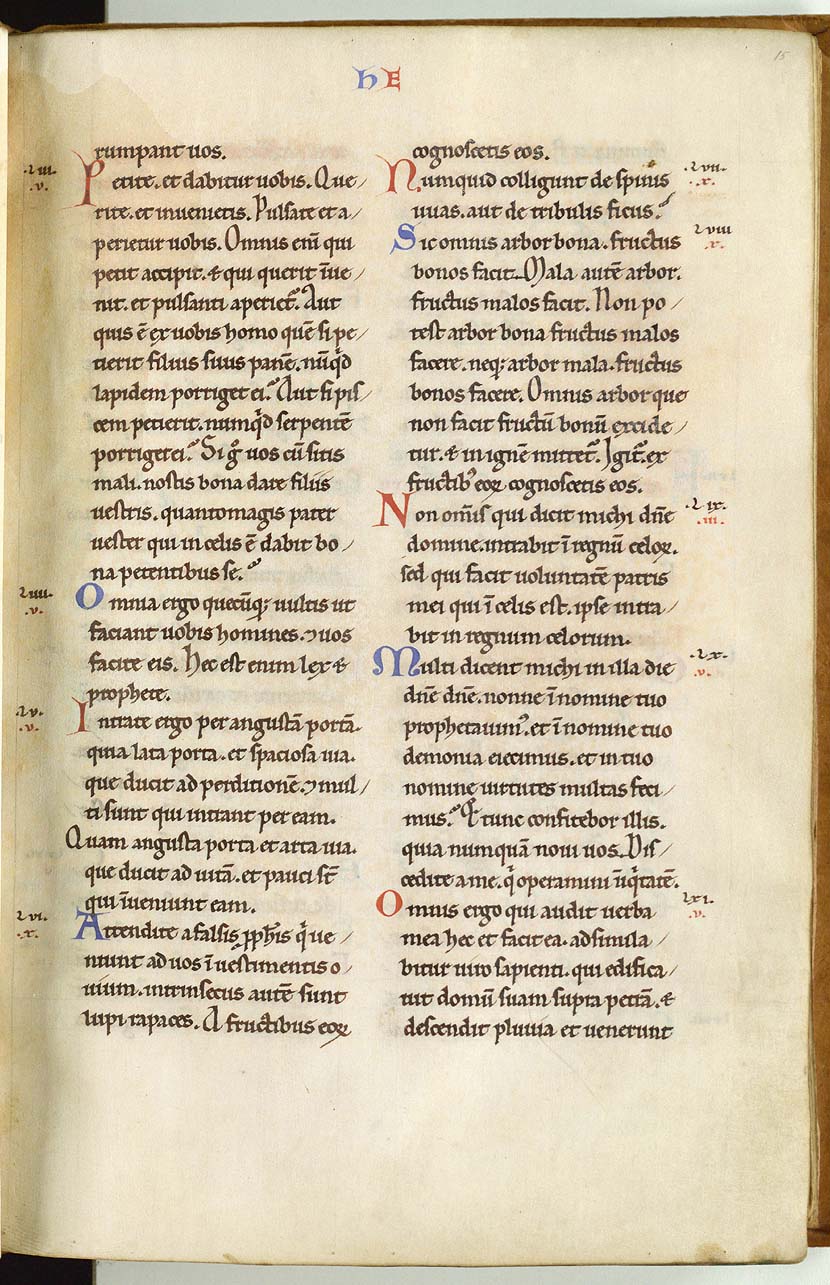 hE
15
rumpant uos.
.lviii.
.v.
Petite. et dabitur uobis. Que/
rite. et inuenietis. Pulsate et a/
perietur uobis. Omnis eni̅ qui
petit accipit. & qui querit i̅ue/
nit. et pulsanti aperiet᷑. Aut
quis e̅ ex uobis homo que̅ si pe/
tierit filius suus pane̅. nu̅qͥd
lapidem porriget ei? Aut si pis/
cem petierit. numqͥd serpente̅
porriget ei? Si gͦ uos cu̅ sitis
mali. nostis bona dare filiis
uestris. quantomagis pater
uester qui in celis e̅ dabit bo/
na petentibus se?
.v.
Omnia ergo quecu̅q; uultis ut
faciant uobis homines. ⁊ uos
facite eis. Hec est enim lex &
prophete.
.lv.
.v.
Intrate ergo per angusta̅ porta̅.
quia lata porta. et spaciosa uia.
que ducit ad perditione̅. ⁊ mul/
ti sunt qui intrant per eam.
Quam angusta porta et arta uia.
que ducit ad uita̅. et pauci st̅
qui i̅ueniunt eam.
.lvi.
.x.
Attendite a falsis ꝓph̅is qͥ ue/
niunt ad uos i̅ uestimentis o/
uium. intrinsecus aute̅ sunt
lupi rapaces. A fructibus eoꝝ
cognoscetis eos.
.lvii.
.x.
Numquid colligunt de spinis
uuas. aut de tribulis ficus?
.lviii
.x.
Sic omnis arbor bona. fructus
bonos facit. Mala aute̅ arbor.
fructus malos facit. Non po/
test arbor bona fructus malos
facere. neq; arbor mala. fructus
bonos facere. Omnis arbor que
non facit fructu̅ bonu̅ excide/
tur. & in igne̅ mittet᷑. Igit᷑ ex
fructibꝰ eoꝝ cognoscetis eos.
.lix.
.iii.
Non om̅is qui dicit michi dn̅e
domine. intrabit i̅ regnu̅ celoꝝ.
sed qui facit uoluntate̅ patris
mei qui i̅ celis est. ipse intra/
bit in regnum celorum.
.lx.
.v.
Multi dicent michi in illa die
dn̅e dn̅e. nonne i̅ nomine tuo
prophetauimꝰ. et i̅ nomine tuo
demonia eiecimus. et in tuo
nomine uirtutes multas feci/
mus? Et tunc confitebor illis.
quia numqua̅ noui uos. Dis/
cedite a me. qͥ operamini i̅iqͥtate̅.
lxi.
.v.
Omnis ergo qui audit uerba
mea hec et facit ea. adsimila/
bitur uiro sapienti. qui edifica/
uit domu̅ suam supra petra̅. &
descendit pluuia et uenerunt